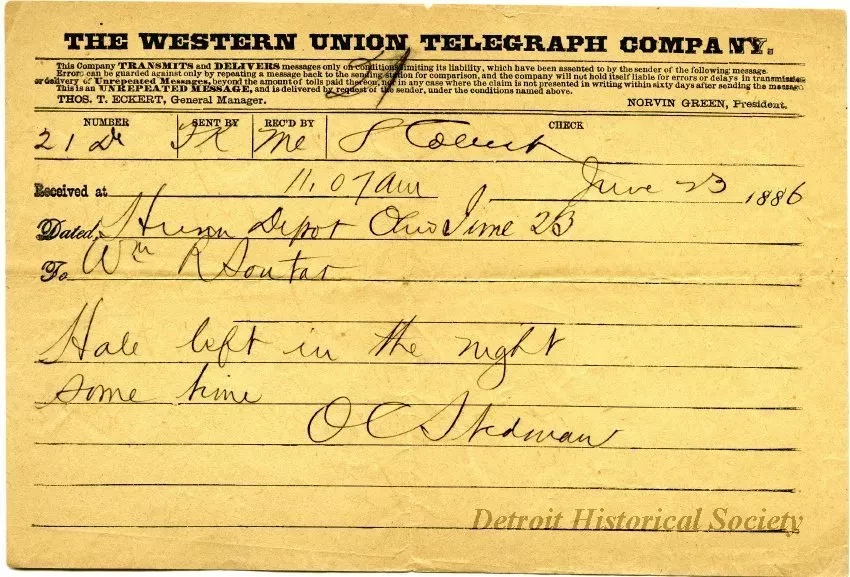 THE WESTERN UNION TELEGRAPH COMPANY.
This Company TRANSMITS and DELIVERS messages only on conditions limiting its liability, which have been assented to by the sender of the following message.
Errors can be guarded against only by repeating a message back to the sending station for comparison, and the company will not hold itself liable for errors or delays in transmission
or delivery of Unrepeated Messages, beyond the amount of tolls paid thereon, nor in any case where the claim is not presented in writing within sixty days after sending the message
This is an UNREPEATED MESSAGE, and is delivered by request of the sender, under the conditions named above.
THOS. T. ECKERT, General Manager. NORVIN GREEN, President.
NUMBER SENT BY REC'D BY CHECK
21 FK Me 8 Collect
Received at 11.07 am June 23 1886
Dated, Huron Depot Ohio June 23
To Wm R Soutar
Hale left in the night
some time
O C Stedman
Detroit Historical Society